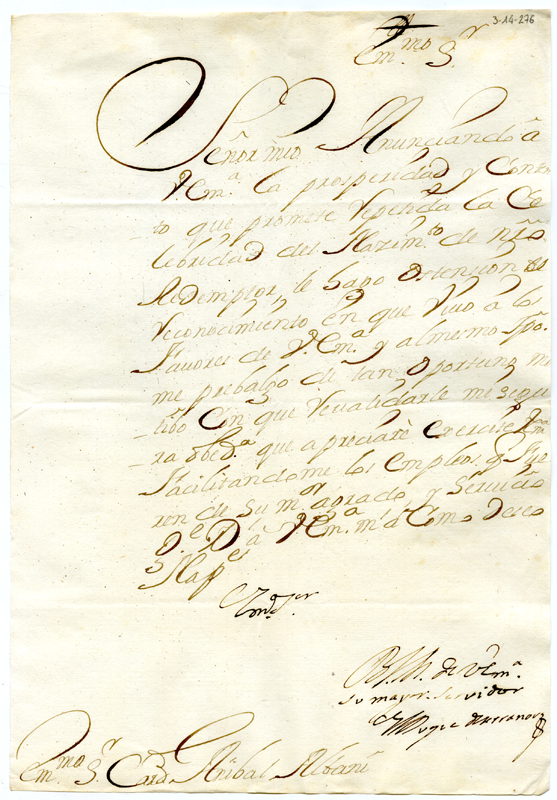 3-14-276
Em.mo S.r
Señor mio Anunciando â
V. Em.a la prosperidad y Conten
to que promete Vependa la Ce
lebridad del Nazim.to de nrô
Redemptor, le hago Ostension del
Reconocimiento en que Vivo a los
favores de V. Em.a y al mesmo tpô.
me prebalgo de tan Oportuno mo
tibo Con que revalidarle mi segu
ra obed.a que apreciarè exercite V. Em.a
facilitandome los empleos, q. fue
ren de su m.or agrado, y Servicio
D.s G.e a V. Em.a m.s a.s Como Deseo
Nap.es
B. l. M. de V. Em.a
su mayor servidor
El Duque
Em.mo S.r Card. Anibal Albani